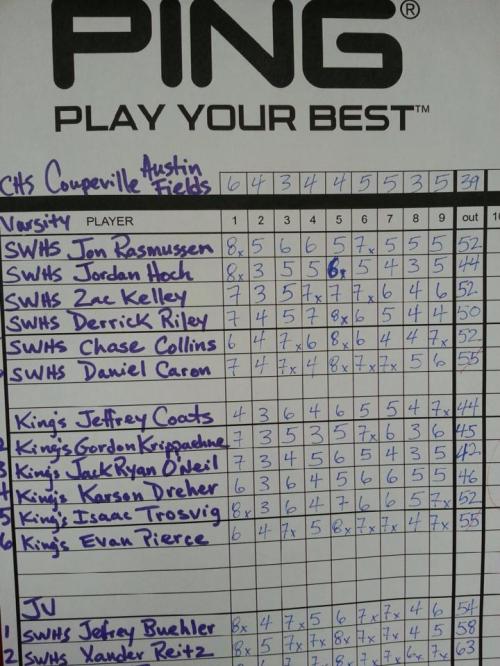 PING®
PLAY YOUR BEST™
CHS Coupeville Austin Fields 6 4 3 4 4 5 5 3 5 39
Varsity PLAYER 1 2 3 4 5 6 7 8 9 out
SWHS Jon Rasmussen 8x 5 6 6 5 7x 5 5 5 52
SWHS Jordan Hoch 8x 3 5 5 6x 5 4 3 5 44
SWHS Zac Kelley 7 3 5 7x 7 7x 6 4 6 52
SWHS Derrick Riley 7 4 5 7 8x 6 5 4 4 50
SWHS Chase Collins 6 4 7x 6 8x 6 4 4 7x 52
SWHS Daniel Caron 7 4 7x 4 8x 7x 7x 5 6 55
King's Jeffrey Coats 4 3 6 4 6 5 5 4 7x 44
2 King's Gordon Krippaehne 7 3 5 3 5 7x 6 3 6 45
3 King's Jack Ryan O'Neil 7 3 4 5 6 5 4 3 5 42
4 King's Karson Dreher 6 3 6 4 5 6 6 5 5 46
5 King's Isaac Trosvig 8x 3 6 4 7 6 6 5 7x 52
6 King's Evan Pierce 6 4 7x 5 8x 7x 7x 4 7x 55
JV
54
1 SWHS Jefrey Buehler 8x 4 7x 5 6 7x 7x 4 6 58
2 SWHS Xander Reitz 8x 5 7x 7x 8x 7x 7x 4 5 63